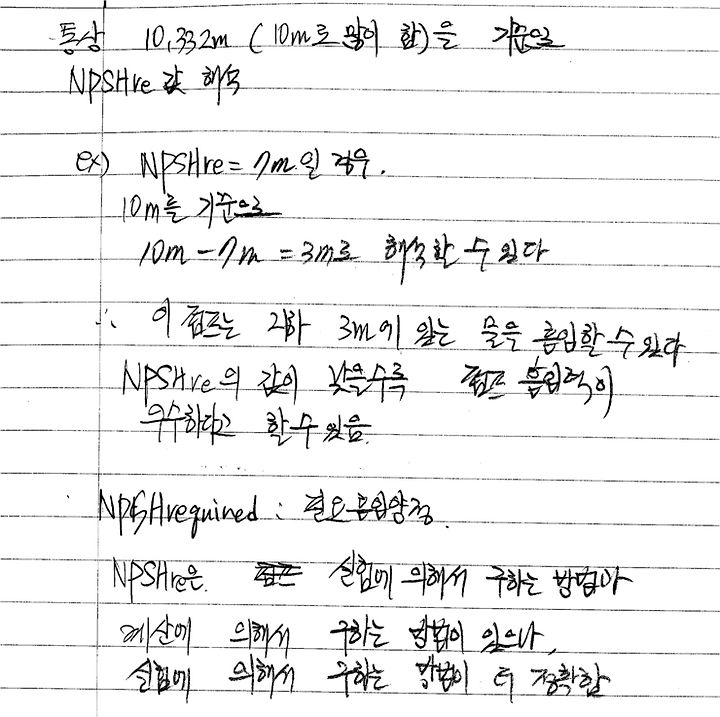 통상 10,332m (10m로 많이 함)을 기준으로
NPSHre 값 해석
ex) NPSHre = 7m 일 경우.
10m를 기준으로
10m - 7m = 3m로 해석할 수 있다
∴ 이 펌프는 지하 3m에 있는 물을 흡입할 수 있다
NPSHre의 값이 낮을수록 펌프 흡입력이
우수하다고 할 수 있음.
NPSHrequired : 필요흡입양정.
NPSHre은. 실험에 의해서 구하는 방법과
계산에 의해서 구하는 방법이 있으나,
실험에 의해서 구하는 방법이 더 정확함